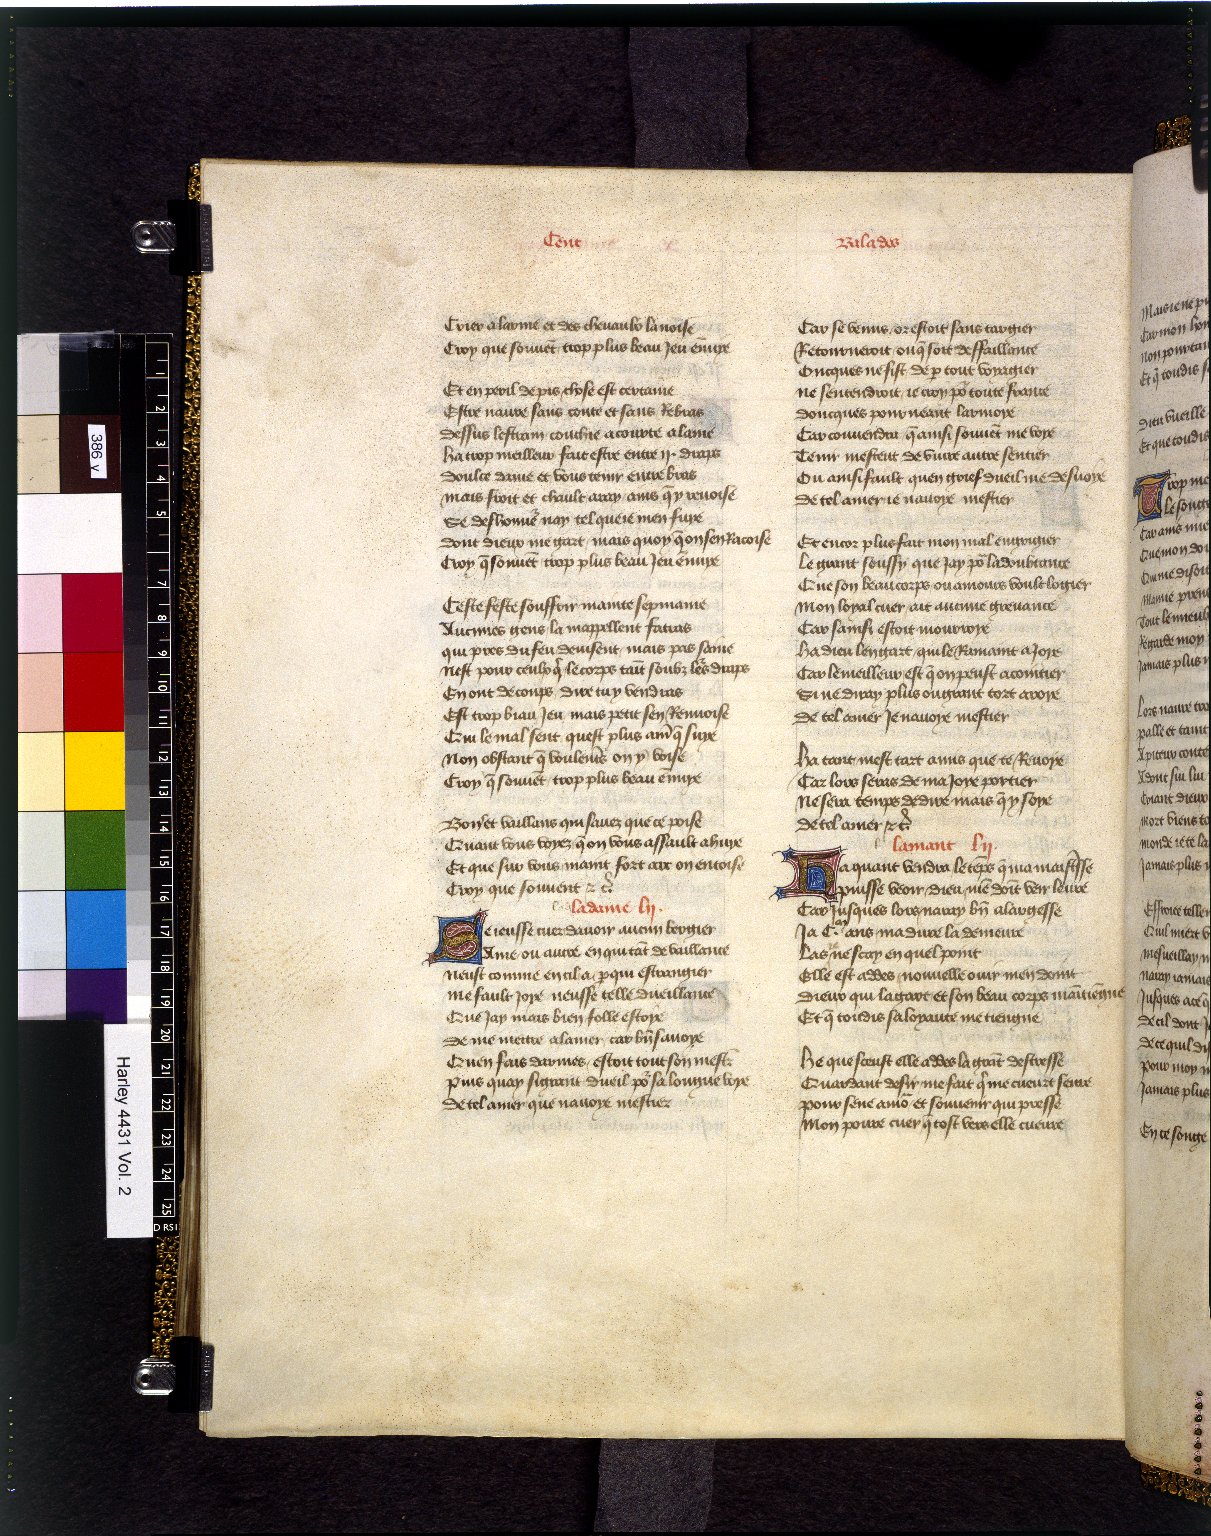 Cent
Balades
Crier alarme et des chevaulx la noise
Croy que souuẽt trop plus beau jeu ẽnuye
Et en peril de pis chose est certaine
Estre naure sans conte et sans rebras
dessus lestrain couchie acourte alaine
ha trop meilleur fait estre entre ij. draps
doulce dame et vous tenir entre bras
mais froit et chault aray amis q̃ y renoise
Se deshonne᷑ nay tel que ie men fuye
dont dieux me gart mais quoy quon sen racoise
Croy q̃ souuẽt trop plus beau jeu ẽnuye
Ceste feste souffrir mainte sepmaine
Aucunes gens la mappellent fatras
qui pres du feu deuisent mais pas saine
Nest pour ceulx q̃ le corps tant soubz les draps
En ont de coups dire tu y vendras
Est trop biau jeu mais petit sen renuoise
Qui le mal sent quest plus am̃ q̃ suye
Non obstant q̃ voulentỉs on y voise
Croy q̃ souuẽt trop plus beau ẽnuye
Bon et vaillans qui sauez que ce poise
Quant vous voyez q̃ on vous assault a huye
Et que sur vous maint fort arc on entoise
Croy que souuent ⁊ c̃
la dame lij.
Se ieusse cuer dauoir aucun bergier
Ame ou autre en qui tãt de vaillance
neust comme en cil a p̱ qui estrangier
me fault joye neusse telle dueillance
Que jay mais bien folle estoye
de me mettre a lamer car bñ sauoye
Quen fais darmes estoit tout son mest᷑
Puis quay si grant dueil po᷑ sa longue voye
de tel amer que nauoye mestier
Car se venus or estoit sans targier
Retourneroit ou q̃ soit deffaillance
Oncques ne fist de p̱ tout voyagier
ne sentendroit ie croy po᷑ toute france
doncques pour neant larmoye
Car conuendra q̃ ainsi souuẽt me voye
Tenir mestent de viure autre sentier
Ou ainsi fault quen grief dueil me desuoye
de tel amer ie nauoye mestier
Et encor plus fait mon mal engregier
Le grant soussy que jay po᷑ la doubtance
Que son beau corps ou amours voult logier
Mon loyal cuer ait aucune greuance
Car sainsi estoit mourroye
ha dieu len gart qui le ramaint a joye
Car le meilleur est q̃ on peust acointier
Si ne diray plus ou grant tort aroye
de tel amer je nauoye mestier
ha tant mest tart amis que te reuoye
Car lors seras de ma joye portier
Ne sera temps de dire mais q̃ y soye
de tel amer ⁊ c̃
lamant lij.
Ha quant vendra le tẽps q̃ ma maistr̃sse
puisse veoir dieu me doit veir leure
Car jusques lors naray bñ a largesse
Ja C. ans ma dure la demeure
Las ne scay en quel point
Elle est addes nouuelle ouir men doint
dieux qui la gart et son beau corps maintiengne
Et q̃ toudis sa loyaute me tiengne
He que sceust elle addes la grãt destresse
Quardant desir me fait q̃ me cueurt seure
pour sene amo᷑ et souuenir qui presse
Mon poure cuer q̃ tost vers elle cueure
386 v
Harley 4431 Vol. 2